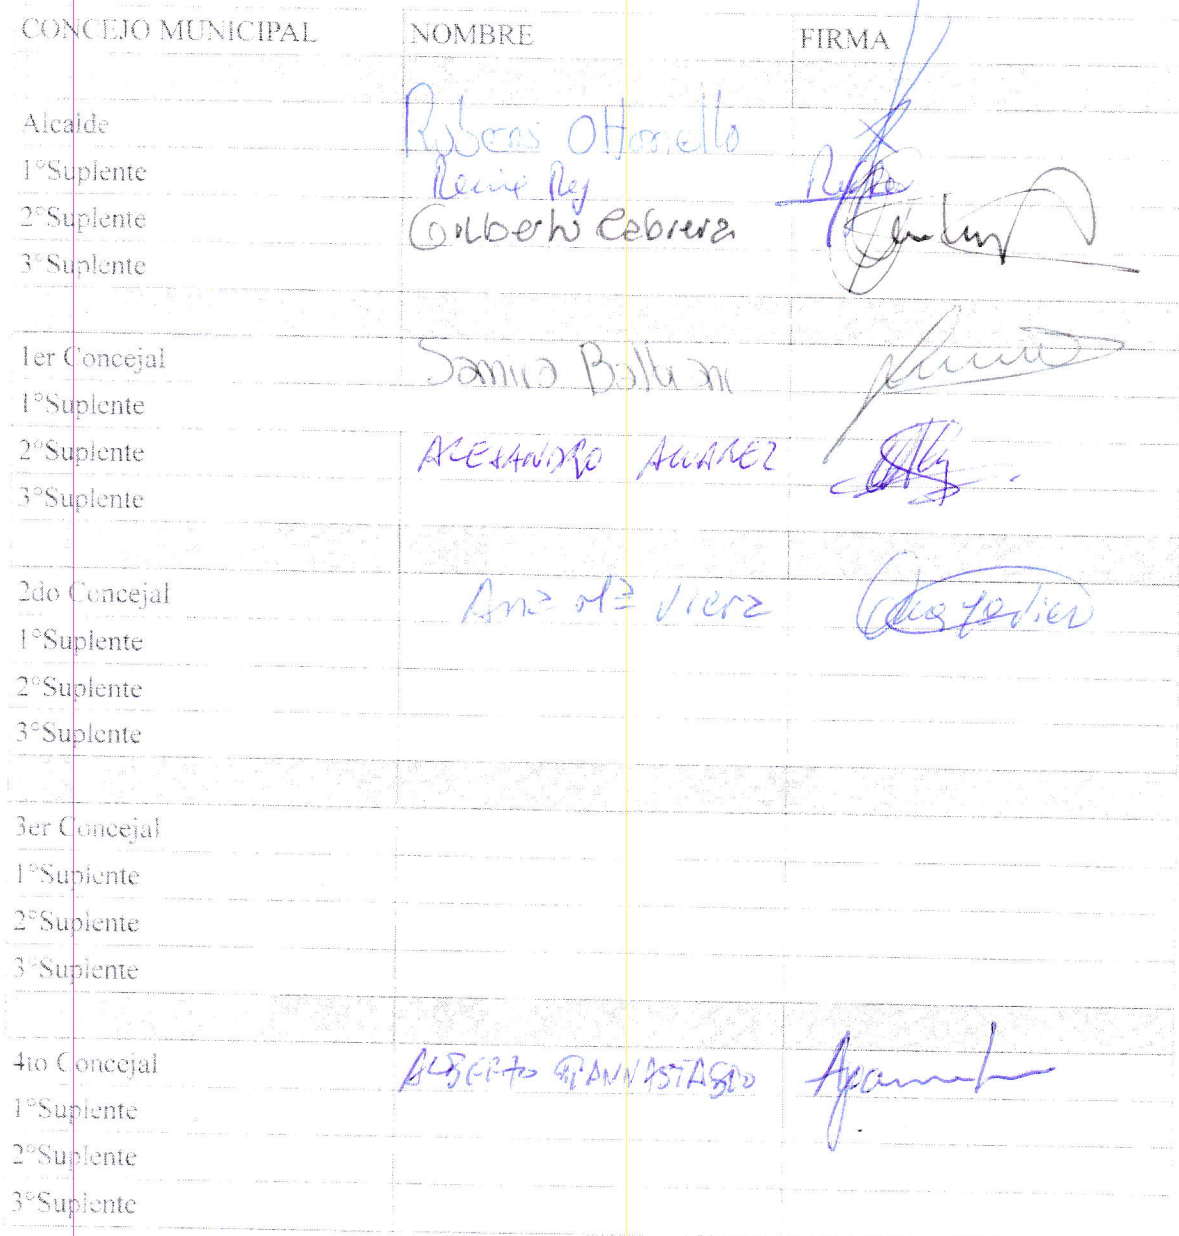 CONCEJO MUNICIPAL NOMBRE FIRMA
Alcalde Rubens Ottonello
1°Suplente Rey
2°Suplente Gilberto Cabrera
3°Suplente
1er Concejal Samira
1°Suplente
2°Suplente ALEXANDRO ALVAREZ
3°Suplente
2do Concejal Ana Mª Viera
1°Suplente
2°Suplente
3°Suplente
3er Concejal
1°Suplente
2°Suplente
3°Suplente
4to Concejal ALBERTO GIANNASTASIO
1°Suplente
2°Suplente
3°Suplente